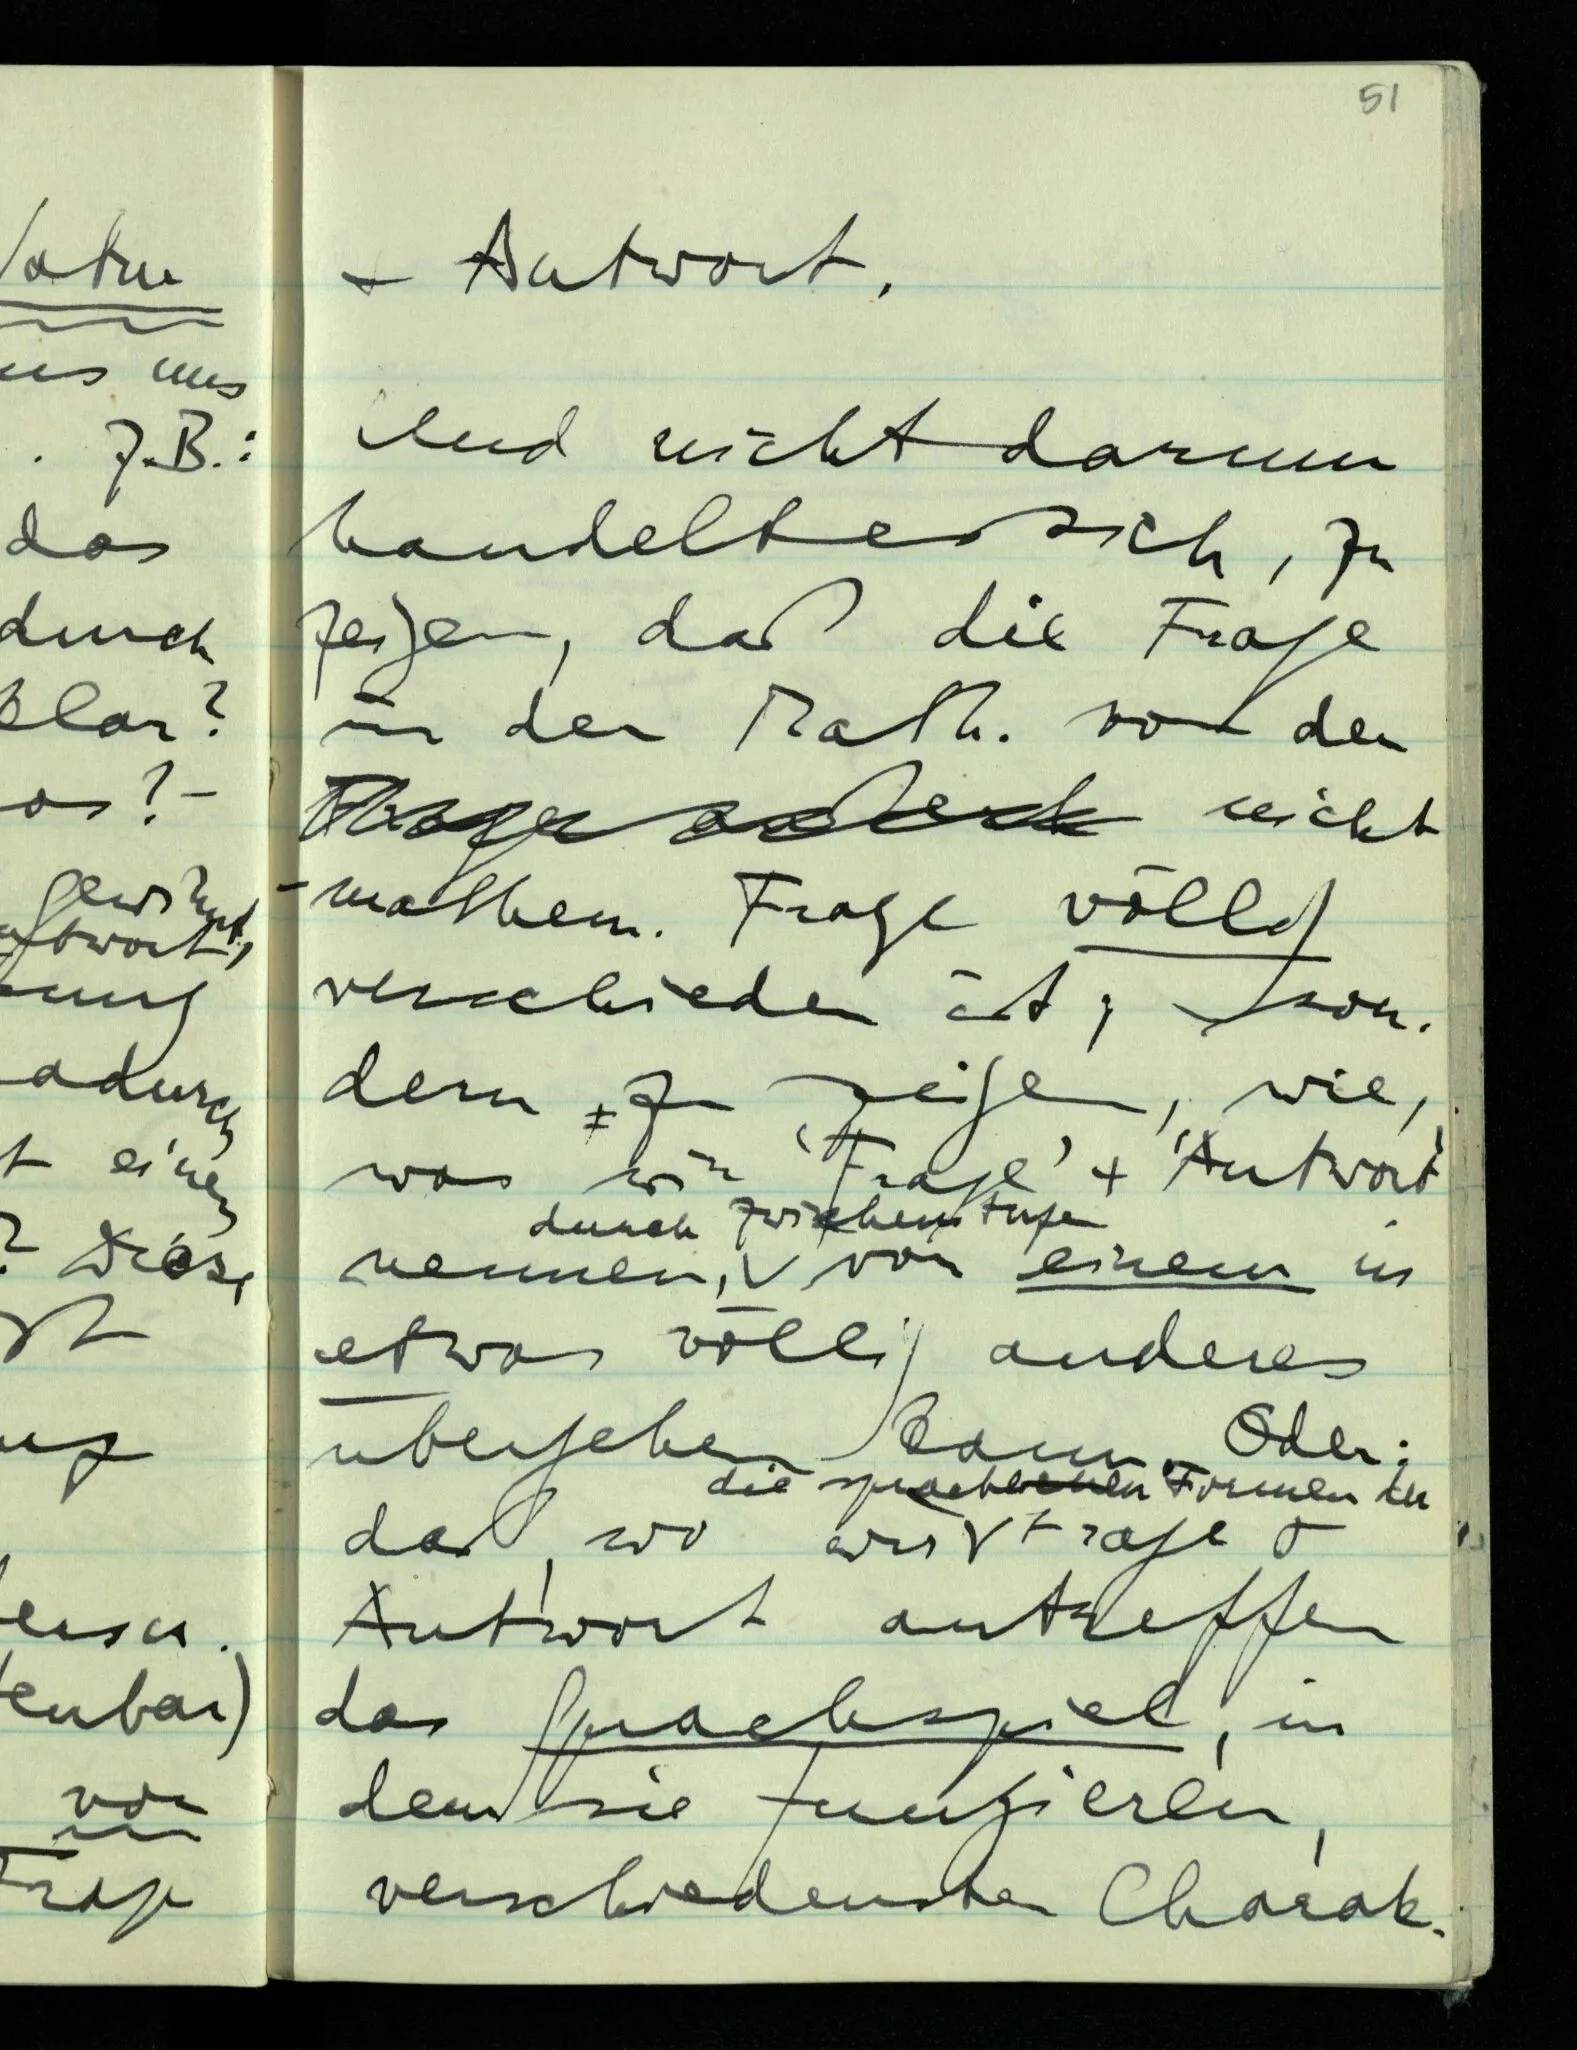 51
atur
uns
. Z.B.:
das
durch
klar?
as? –
gewöhnt,
ntwort,
nung
adurch
t einen
? Diese
enbar)
von
Frage
+ Antwort.
Und nicht darum
handelt es sich, zu
zeigen, daß die Frage
in der Math. von der
nicht
-mathem. Frage völlig
verschieden ist; son-
dern zu zeigen, wie,
was wir ‘Frage’ + ‘Antwort’
durch Zwischenstufen
nennen, von einem in
etwas völlig anderes
übergehen kann. Oder:
die sprachlichen Formen der
daß, wo wir Frage +
Antwort antreffen
das Sprachspiel, in
dem sie fungieren,
verschiedensten Charak-